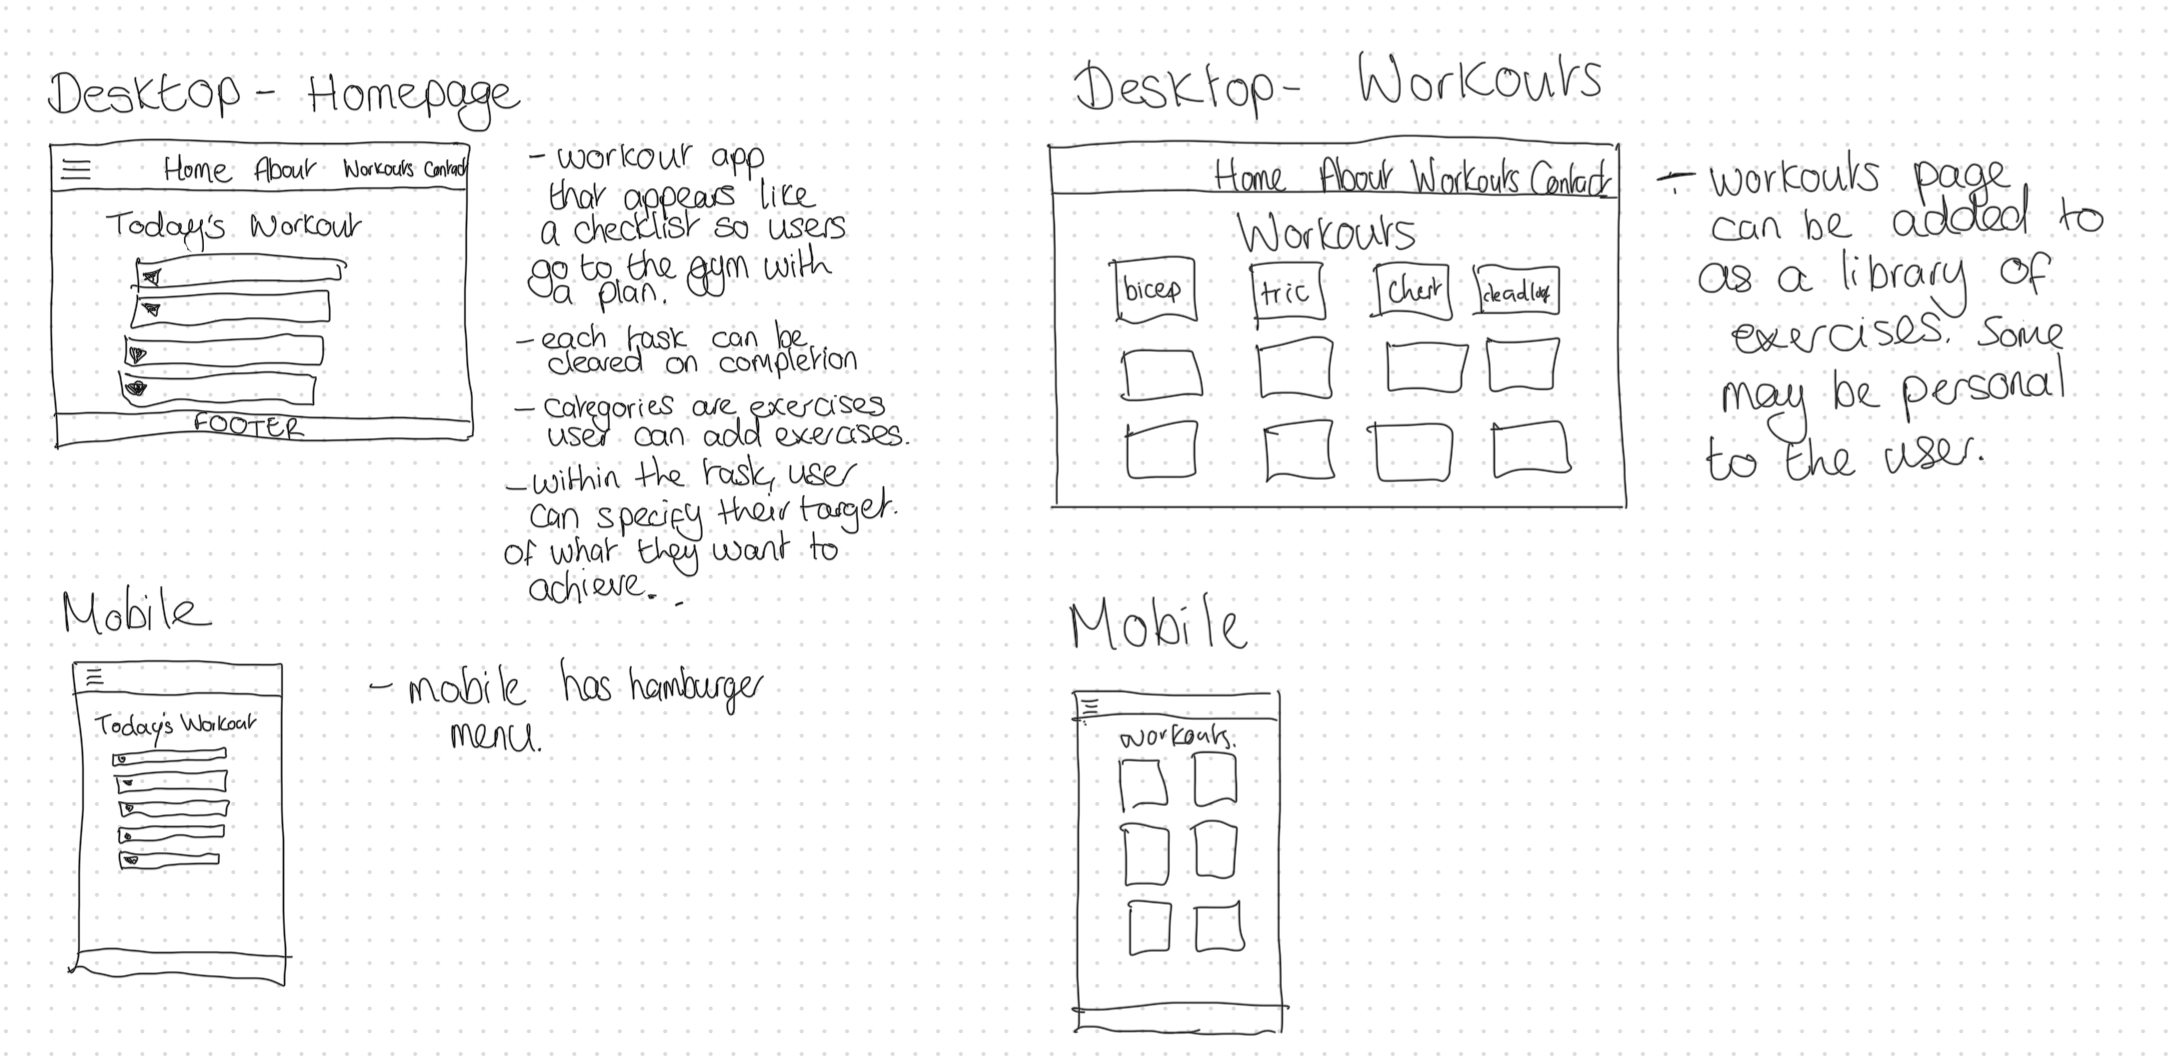 Desktop - Homepage
Home About Workouts Contact
Today's Workout
FOOTER
- workout app
that appears like
a checklist so users
go to the gym with
a plan.
- each task can be
cleared on completion
- categories are exercises
user can add exercises.
- within the task, user
can specify their target.
of what they want to
achieve.
Mobile
Today's Workout
- mobile has hamburger
menu.
Desktop - Workouts
Home About Workouts Contact
Workouts
bicep tric chest
- workouts page
can be added to
as a library of
exercises. Some
may be personal
to the user.
Mobile
Workouts.